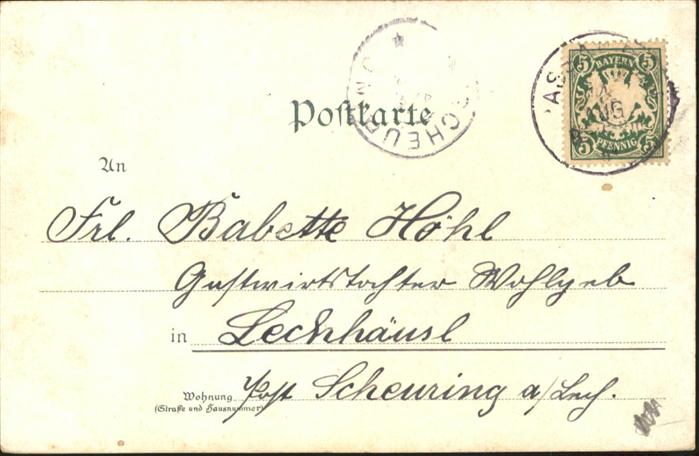 5 BAYERN 5
5 PFENNIG 5
SCHEURING
Postkarte
An
Frl. Babette Höhl
Gastwirtstochter Wohlgeb
in Lechhäusl
Wohnung
(Straße und Hausnummer)
Post Scheuring a/Lech.